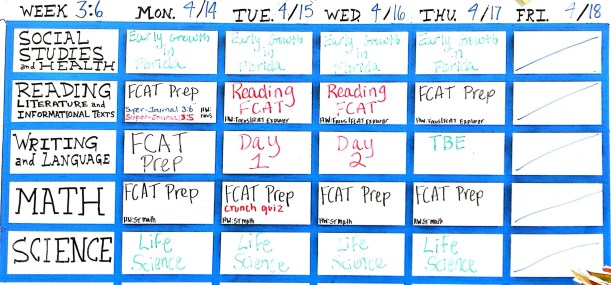 WEEK 3:6 MON. 4/14 TUE. 4/15 WED. 4/16 THU. 4/17 FRI. 4/18
SOCIAL
STUDIES
and HEALTH
Early Growth
in
Florida
Early Growth
in
Florida
Early Growth
in
Florida
Early Growth
in
Florida
READING
LITERATURE and
INFORMATIONAL TEXTS
FCAT Prep
Super-Journal 3:6
Super-Journal 3:5
HW:
Focus
Reading
FCAT
HW: Focus/FCAT Explorer
Reading
FCAT
HW: Focus/FCAT Explorer
FCAT Prep
HW: Focus/FCAT Explorer
WRITING
and LANGUAGE
FCAT
Prep
Day
1
Day
2
TBE
MATH
FCAT Prep
HW: Sr math
FCAT Prep
crunch quiz
HW: Sr math
FCAT Prep
HW: Sr math
FCAT Prep
HW: Sr math
SCIENCE
Life
Science
Life
Science
Life
Science
Life
Science